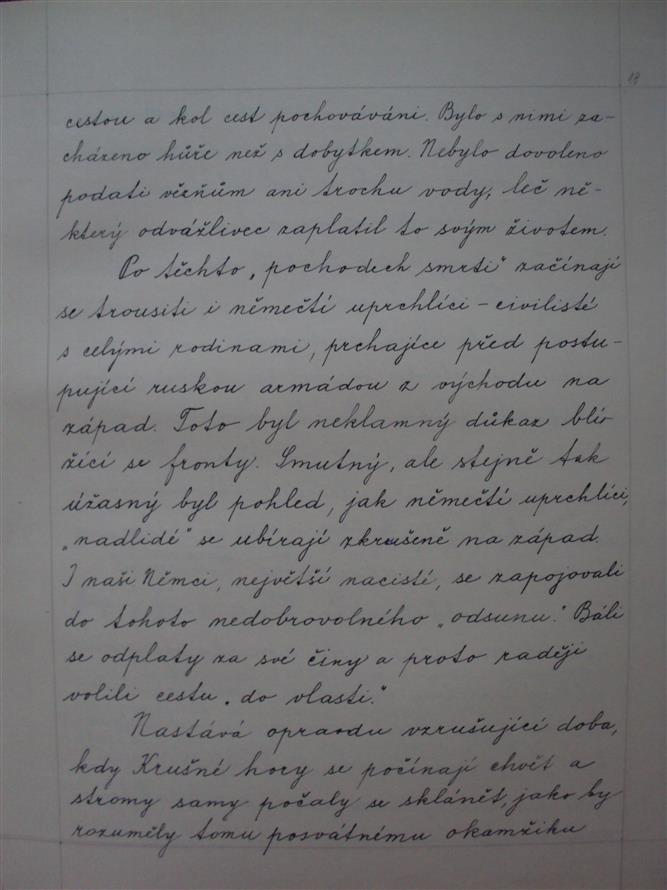 18
cestou a kol cest pochováváni. Bylo s nimi za-
cházeno hůře než s dobytkem. Nebylo dovoleno
podati vězňům ani trochu vody, leč ně-
který odvážlivec zaplatil to svým životem.
Po těchto „pochodech smrti" začínají
se trousiti i němečtí uprchlíci - civilisté
s celými rodinami, prchajíce před postu-
pující ruskou armádou z východu na
západ. Toto byl neklamný důkaz blí
žící se fronty. Smutný, ale stejně tak
úžasný byl pohled, jak němečtí uprchlíci,
„nadlidé" se ubírají zkrušeně na západ.
I naši Němci, největší nacisté, se zapojovali
do tohoto nedobrovolného „odsunu." Báli
se odplaty za své činy a proto raději
volili cestu „do vlasti."
Nastává opravdu vzrušující doba,
kdy Krušné hory se počínají chvět a
stromy samy počaly se sklánět, jako by
rozuměly tomu posvátnému okamžiku